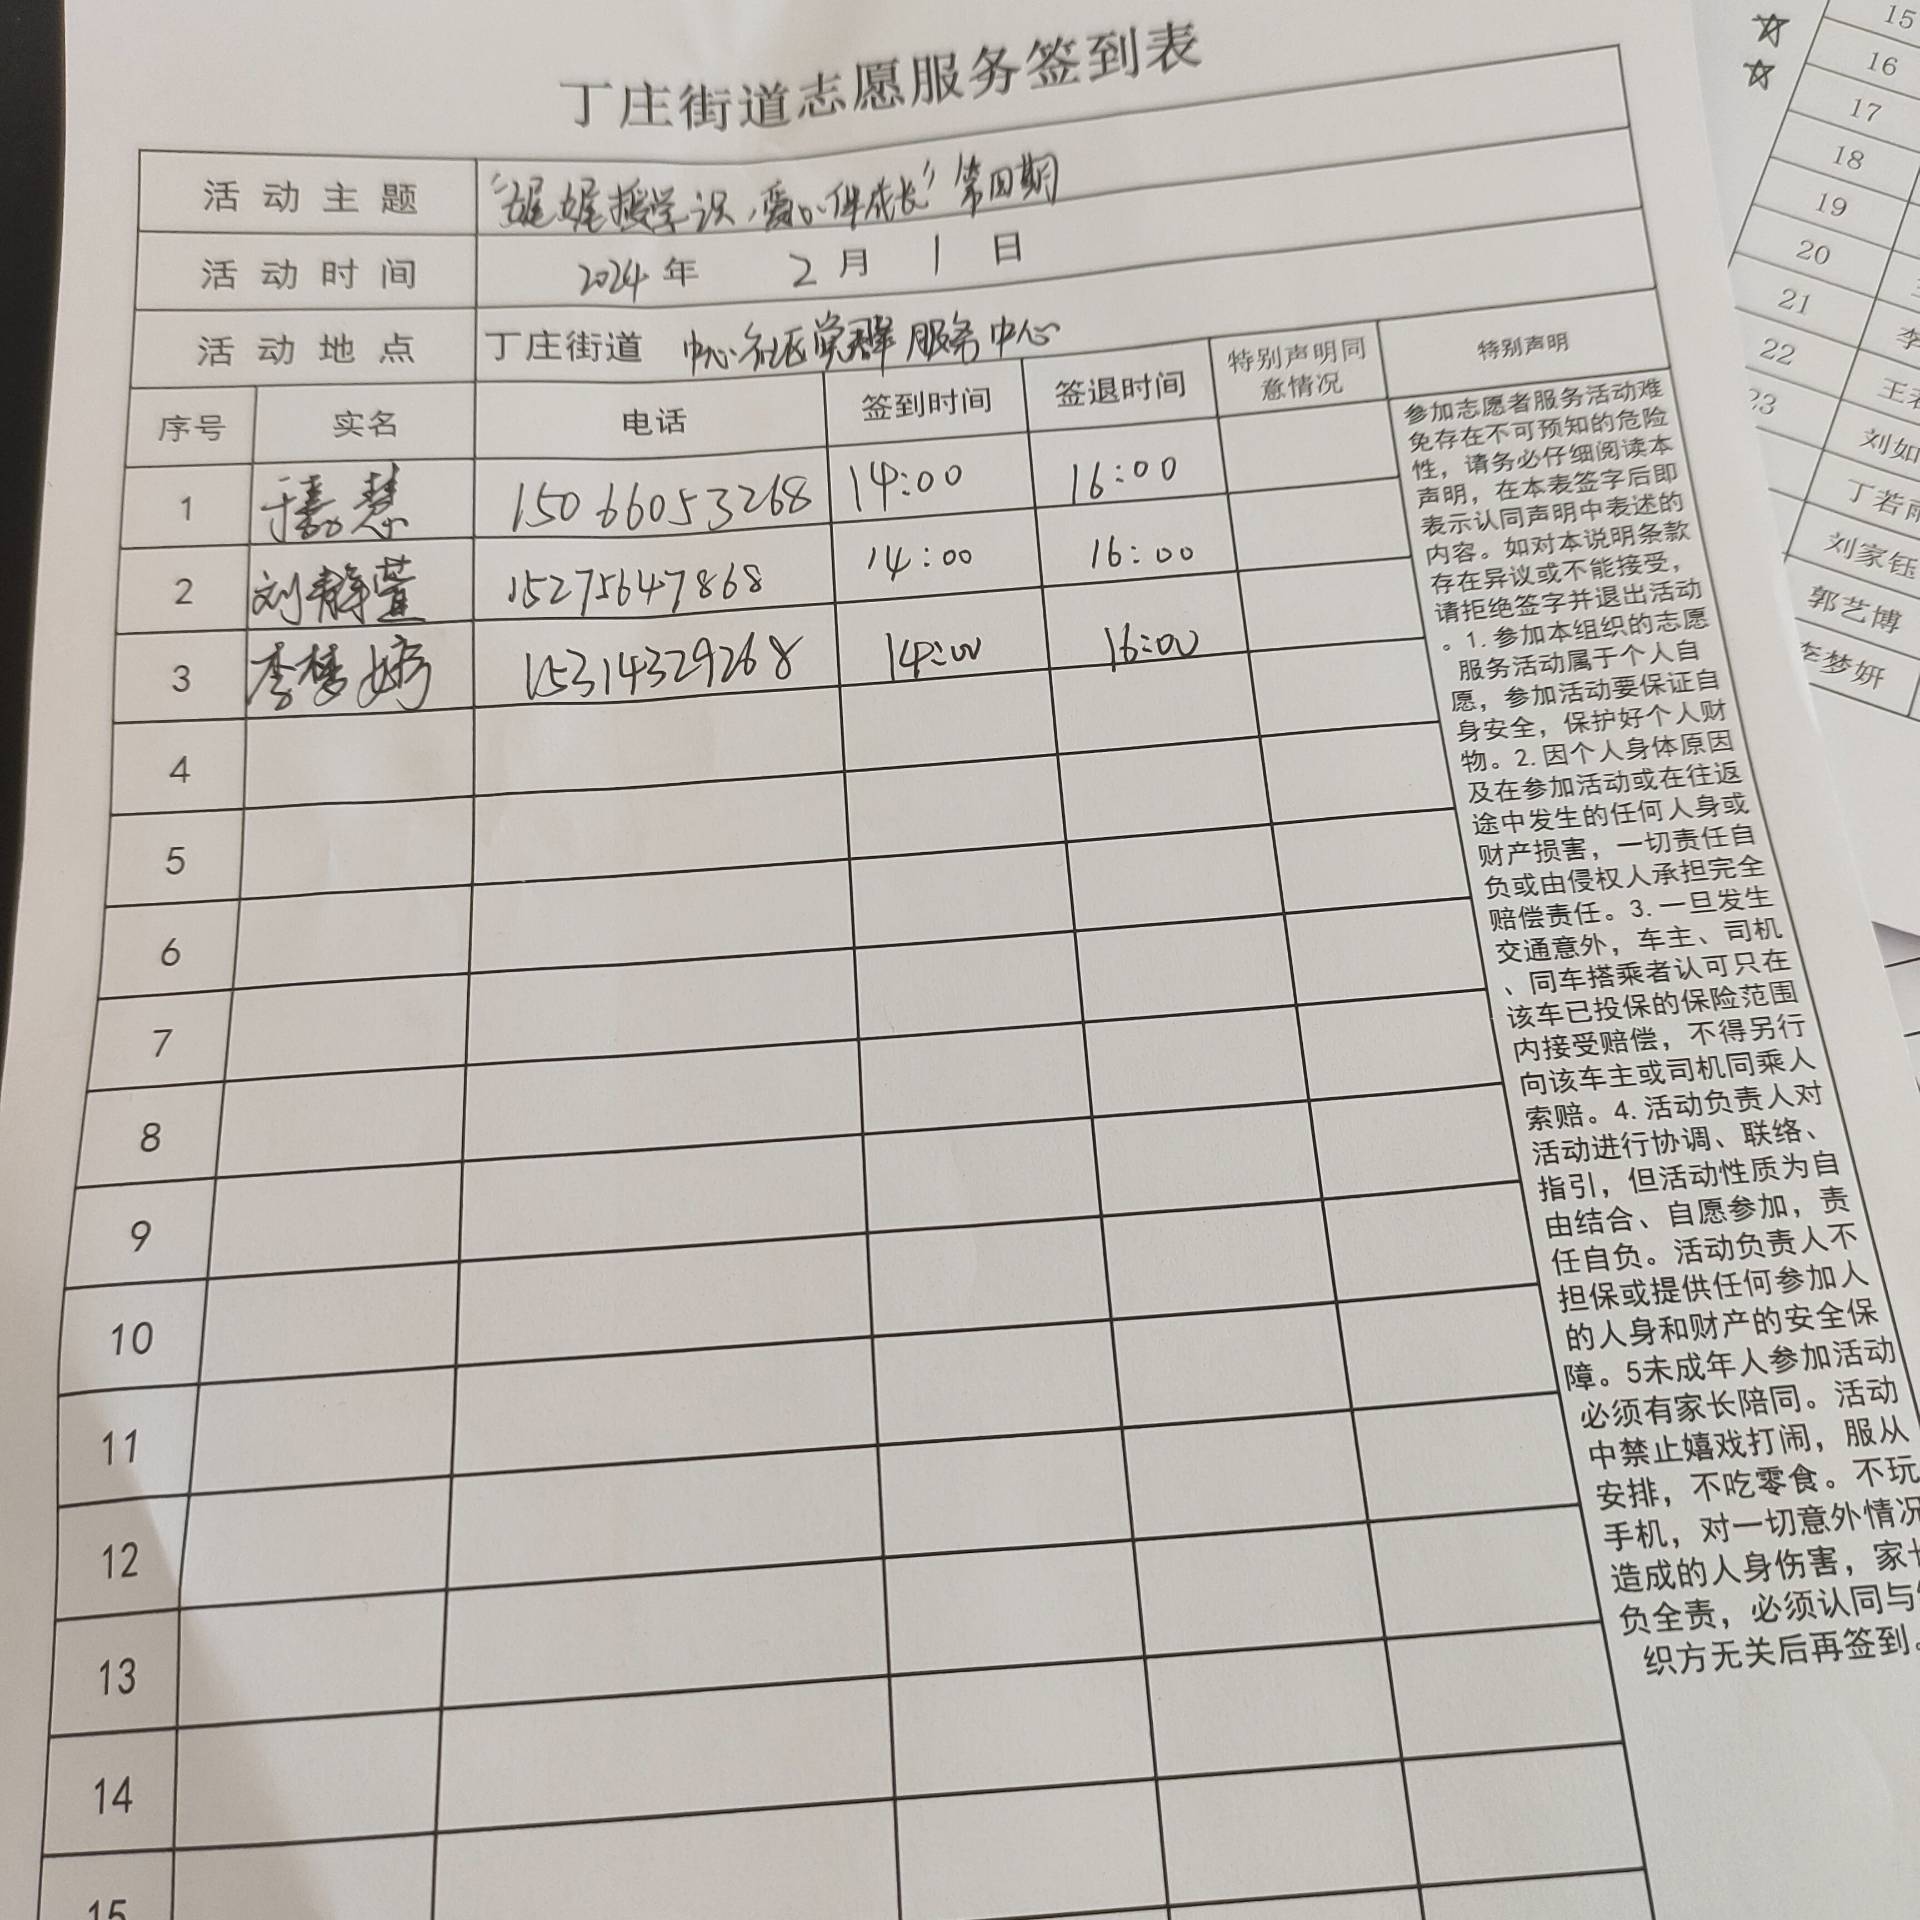 丁庄街道志愿服务签到表
活动主题 “娓娓授学识，爱心伴成长”第四期
活动时间 2024年 2月 1日
活动地点 丁庄街道 中心社区党群服务中心
序号 实名 电话 签到时间 签退时间 特别声明同意情况 特别声明
1 慧 15066053268 14:00 16:00
2 刘静萱 15275647868 14:00 16:00
3 李梦婷 15314329268 14:00 16:00
4
5
6
7
8
9
10
11
12
13
14
15
参加志愿者服务活动难
免存在不可预知的危险
性，请务必仔细阅读本
声明，在本表签字后即
表示认同声明中表述的
内容。如对本说明条款
存在异议或不能接受，
请拒绝签字并退出活动
。1.参加本组织的志愿
服务活动属于个人自
愿，参加活动要保证自
身安全，保护好个人财
物。2.因个人身体原因
及在参加活动或在往返
途中发生的任何人身或
财产损害，一切责任自
负或由侵权人承担完全
赔偿责任。3.一旦发生
交通意外，车主、司机
、同车搭乘者认可只在
该车已投保的保险范围
内接受赔偿，不得另行
向该车主或司机同乘人
索赔。4.活动负责人对
活动进行协调、联络、
指引，但活动性质为自
由结合、自愿参加，责
任自负。活动负责人不
担保或提供任何参加人
的人身和财产的安全保
障。5未成年人参加活动
必须有家长陪同。活动
中禁止嬉戏打闹，服从
安排，不吃零食。不玩
手机，对一切意外情况
造成的人身伤害，家长
负全责，必须认同与
织方无关后再签到。
15
16
17
18
19
20
21 李
22 王
23 刘如
丁若雨
刘家钰
郭艺博
李梦妍